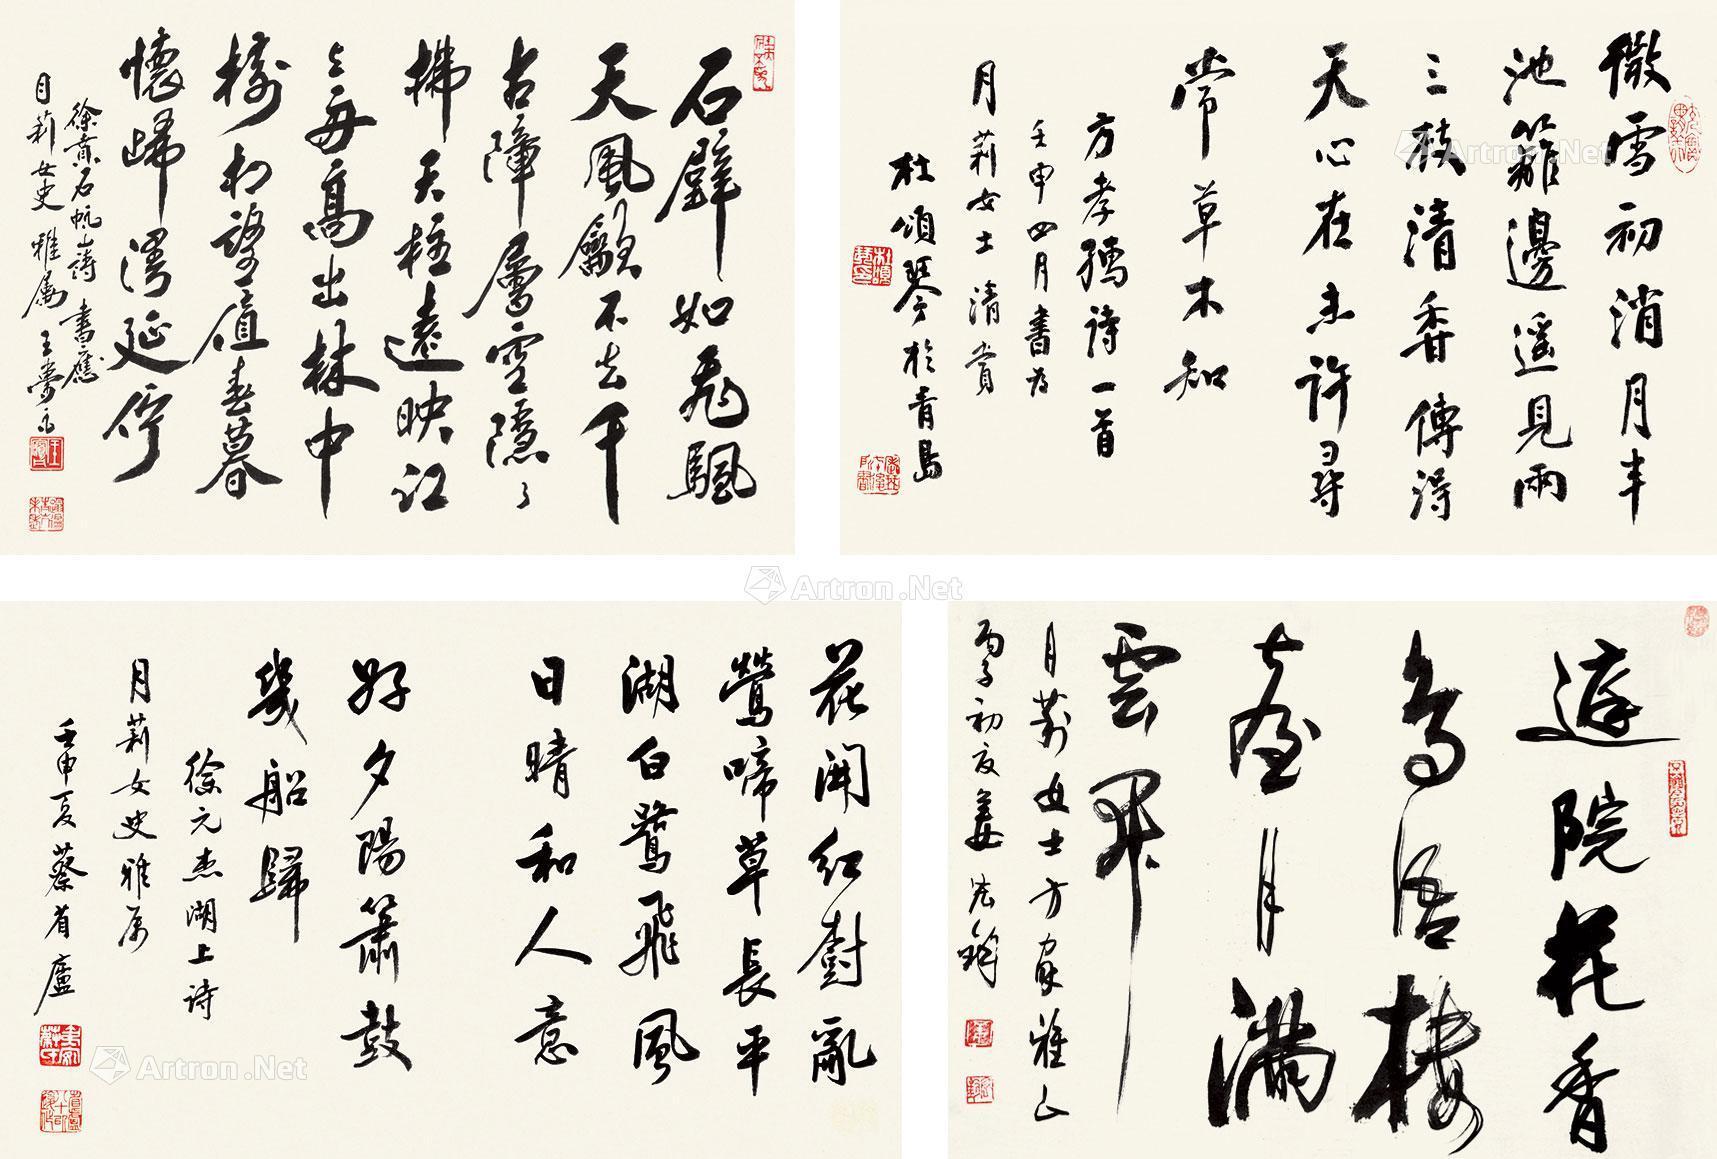 石壁如飛颿
天風翻不去千
古障層空隱々
拂天柱遠映江
上每高出林中
樹相望值春暮
懷歸淂延佇
徐賁石帆山詩 書應
月莉女史雅屬 王夢
微雪初消月半
池籬邊遥見兩
三枝清香傳得
天心在未許尋
常草木知
方孝孺詩一首
壬申四月書為
月莉女士清賞
杜頌琴於青島
花開紅樹亂
鶯啼草長平
湖白鷺飛風
日晴和人意
好夕陽簫鼓
幾船歸
徐元杰湖上诗
月莉女史雅属
壬申夏蔡省廬
遊院花香
鳥語樓
臺月滿
雲
月莉女士方家雅正
丙子初夏姜
Artron.Net
Artron.Net
Artron.Net
Artron.Net